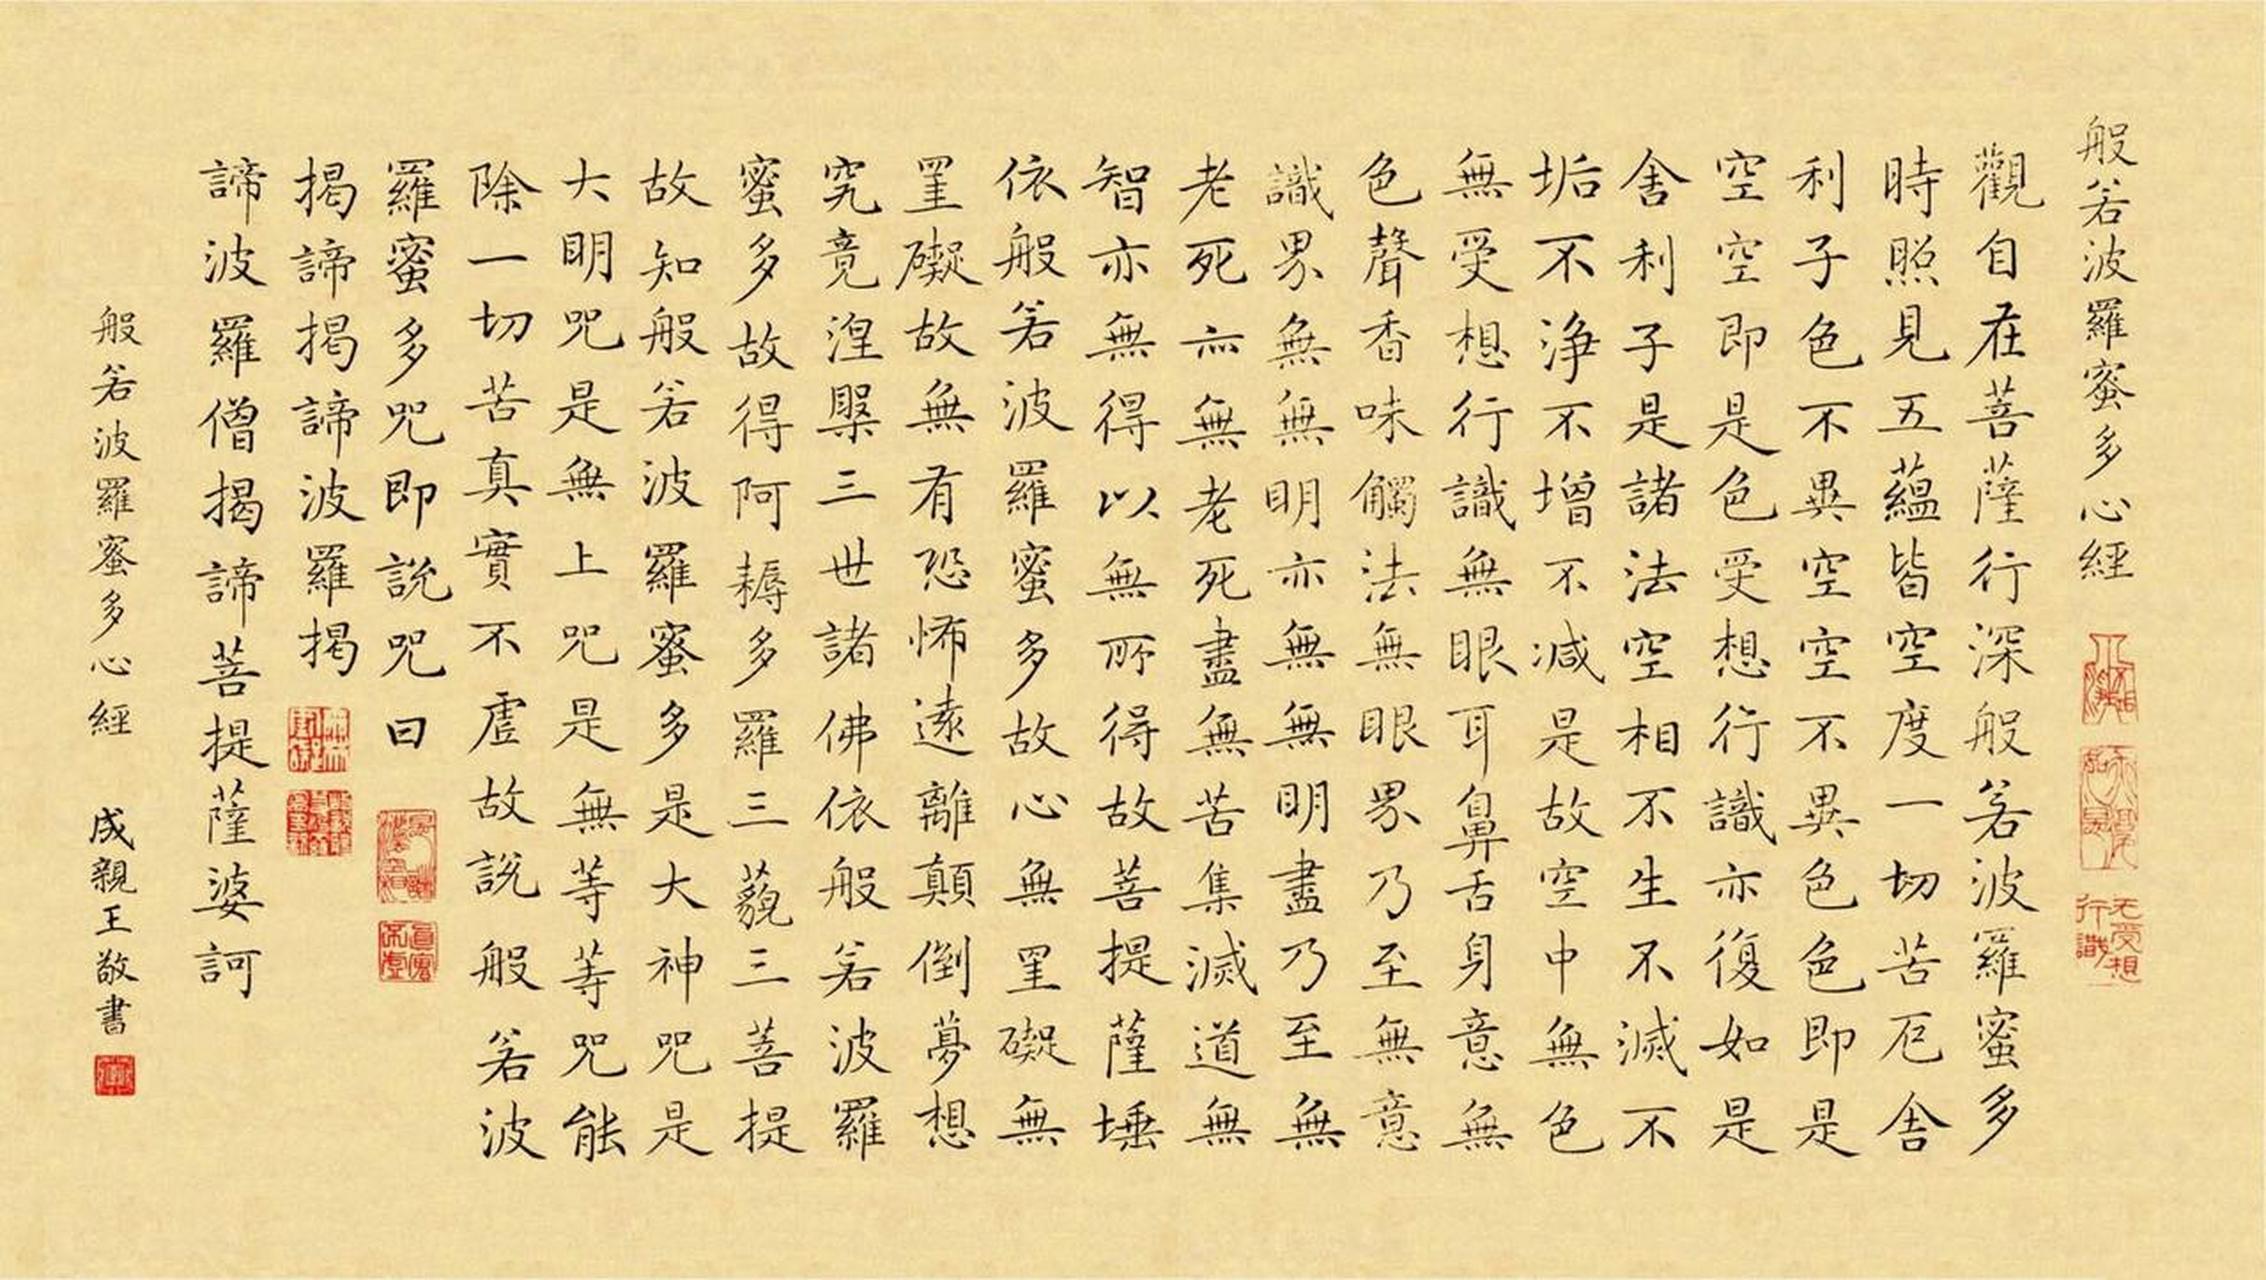 般若波羅蜜多心經
无受想行識
觀自在菩薩行深般若波羅蜜多
時照見五蘊皆空度一切苦厄舍
利子色不異空空不異色色即是
空空即是色受想行識亦復如是
舍利子是諸法空相不生不滅不
垢不淨不增不減是故空中無色
無受想行識無眼耳鼻舌身意無
色聲香味觸法無眼界乃至無意
識界無無明亦無無明盡乃至無
老死亦無老死盡無苦集滅道無
智亦無得以無所得故菩提薩埵
依般若波羅蜜多故心無罣礙無
罣礙故無有恐怖遠離顛倒夢想
究竟涅槃三世諸佛依般若波羅
蜜多故得阿耨多羅三藐三菩提
故知般若波羅蜜多是大神咒是
大明咒是無上咒是無等等咒能
除一切苦真實不虛故說般若波
羅蜜多咒即說咒曰
揭諦揭諦波羅揭
諦波羅僧揭諦菩提薩婆訶
般若波羅蜜多心經 成親王敬書